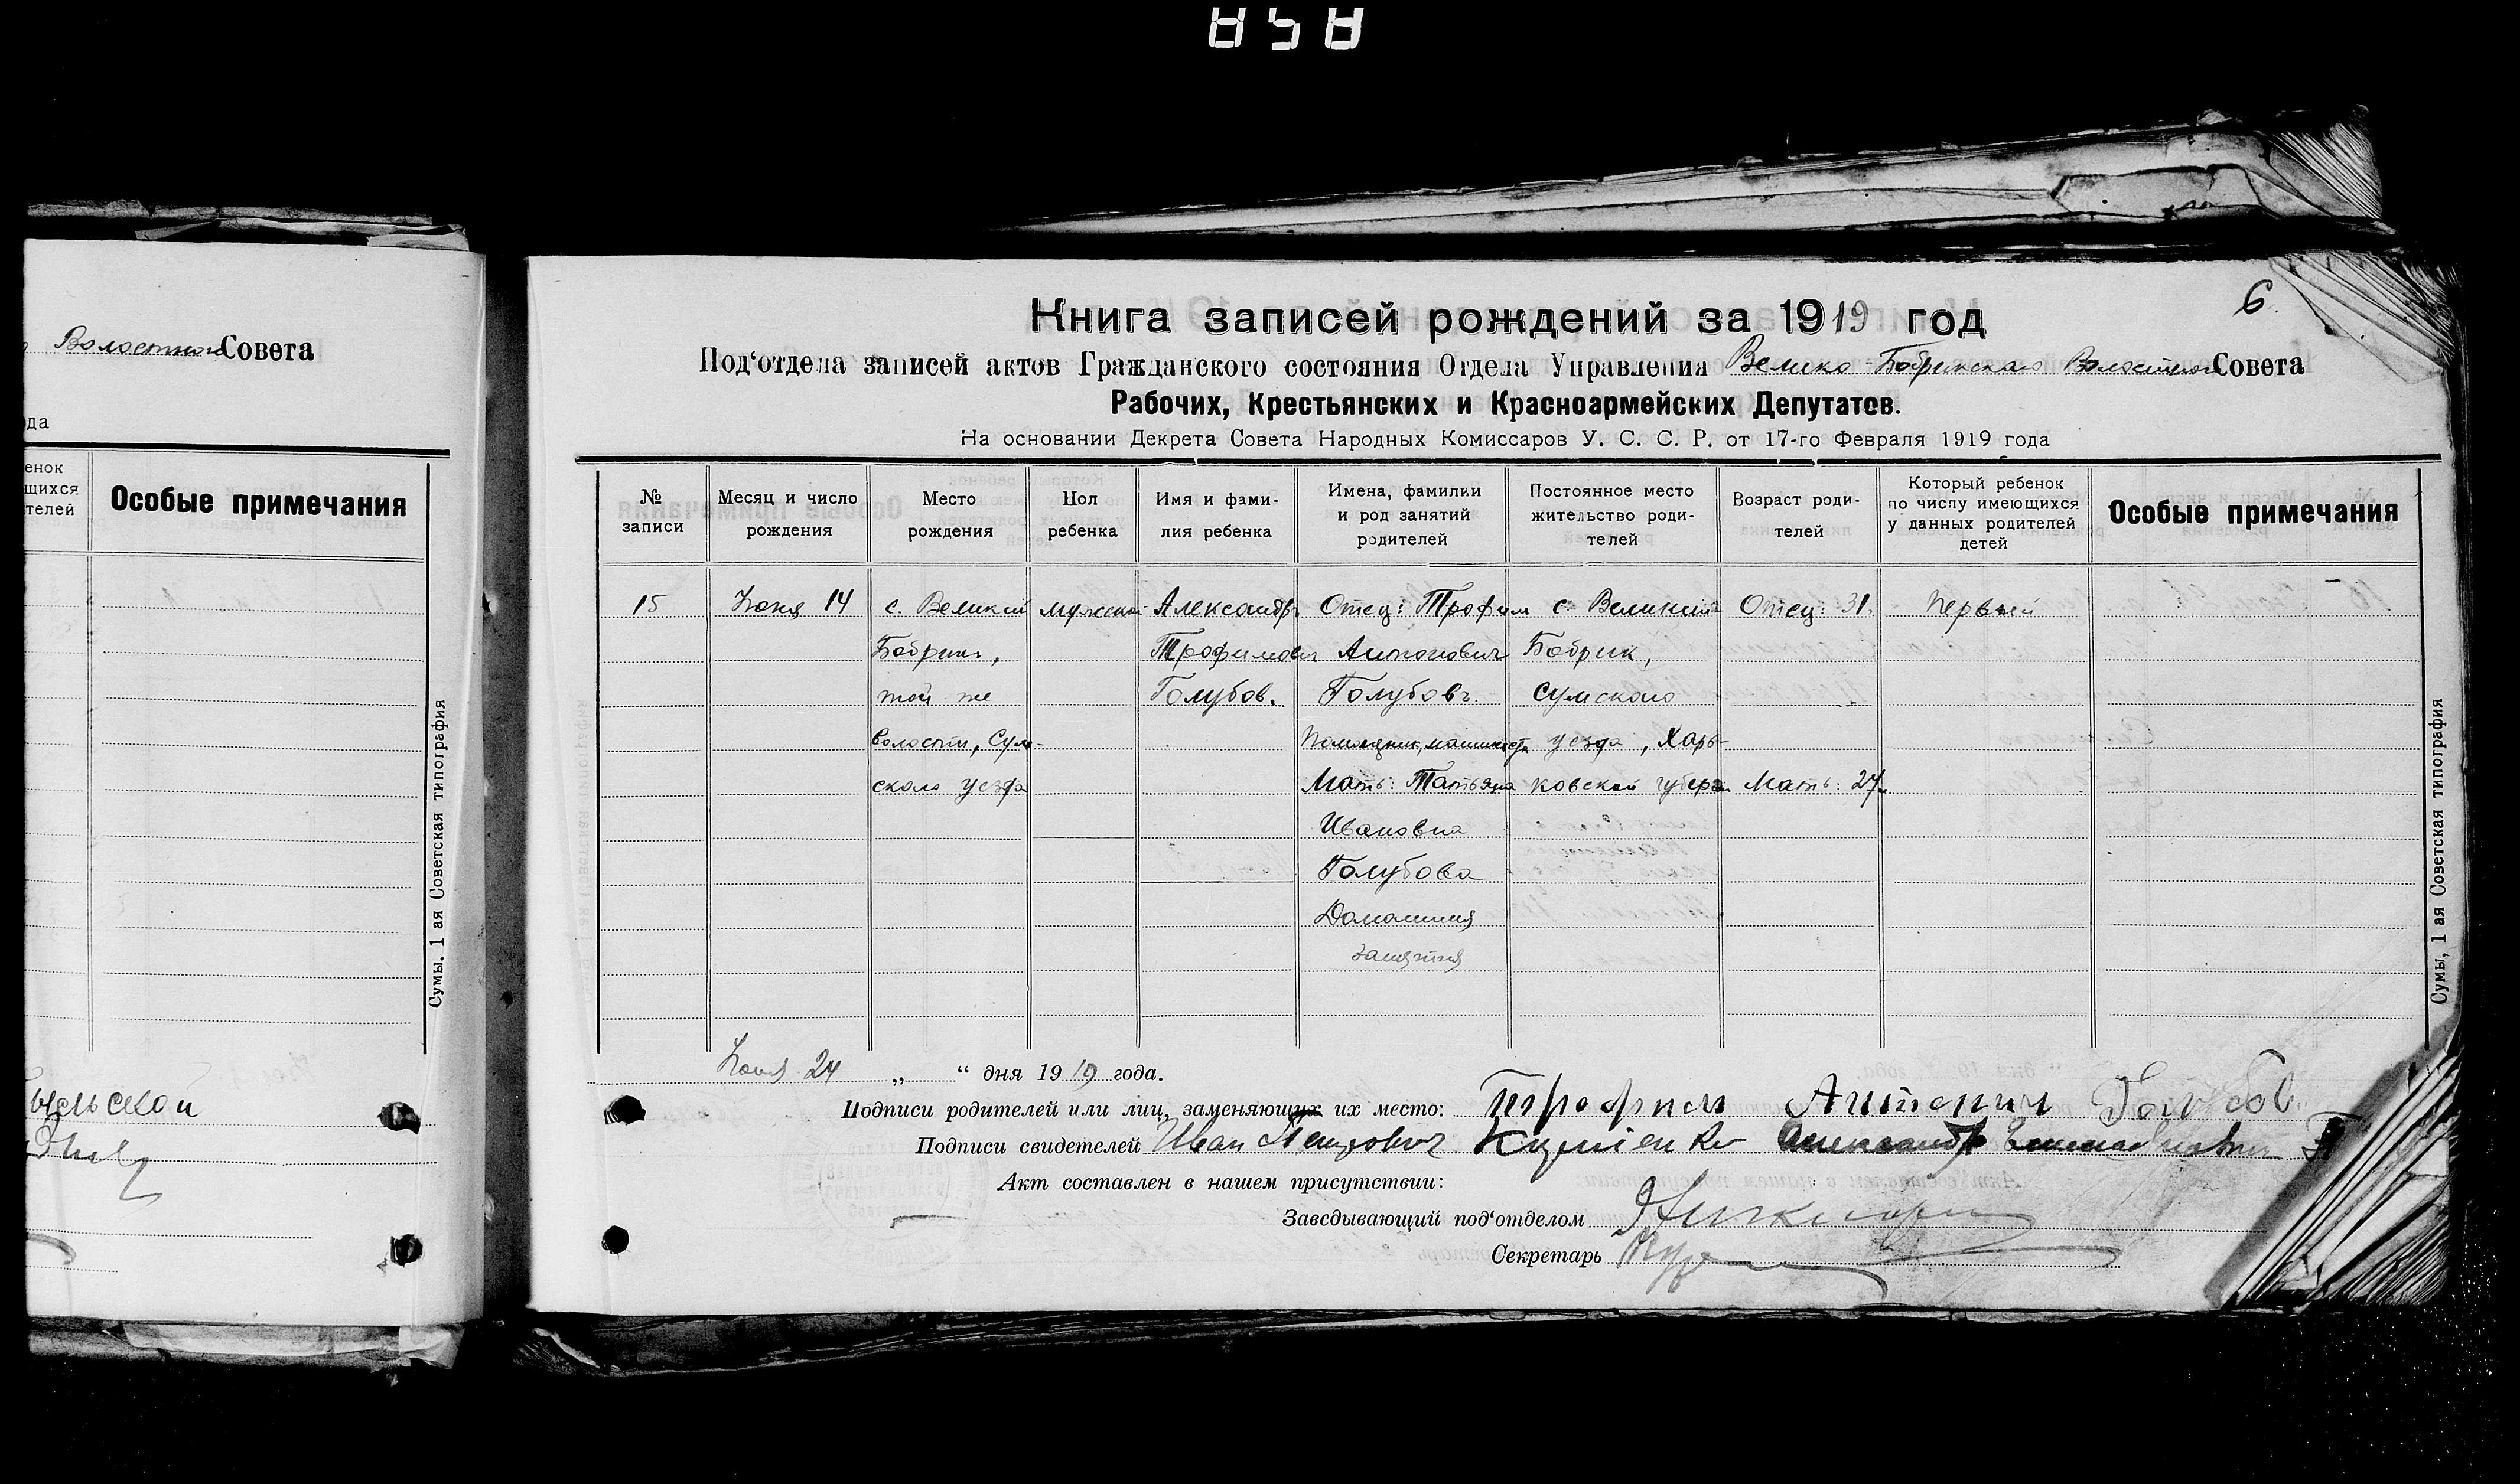 858
Волостного Совета
да
енок
щихся
телей
Особые примечания
Сумы, 1 ая Советская типография
6.
Книга записей рождений за 1919 год
Под‘отдела записей актов Гражданского состояния Отдела Управления Велико-Бобрикского Волостного Совета
Рабочих, Крестьянских и Красноармейских Депутатов.
На основании Декрета Совета Народных Комиссаров У. С. С. Р. от 17-го Февраля 1919 года
№ записи
Месяц и число рождения
Место рождения
Пол ребенка
Имя и фами-
лия ребенка
Имена, фамилки
и род занятий
родителей
Постоянное место
жительство роди-
телей
Возраст роди-
телей
Который ребенок
по числу имеющихся
у данных родителей
детей
Особые примечания
15 Июня 14 с. Великий мужской Александр Отец: Трофим с. Великий Отец: 31. первый
Бобрик, Трофимович Антонович Бобрик,
той же Голубов. Голубовъ. Сумского
волости, Сум- Помощник машиниста уезда, Харь-
ского уезда Мать: Татьяна ковской губерн. Мать: 27
Ивановна
Голубова
Домашния
занятия
Сумы, 1 ая Советская типография
Июня 24 „ “ дня 1919 года.
Подписи родителей или лиц, заменяющих их место: Трофим Антонич Голубов
Подписи свидетелей Иван Александр
Акт составлен в нашем присутствии:
Заведывающий под‘отделом
Секретарь